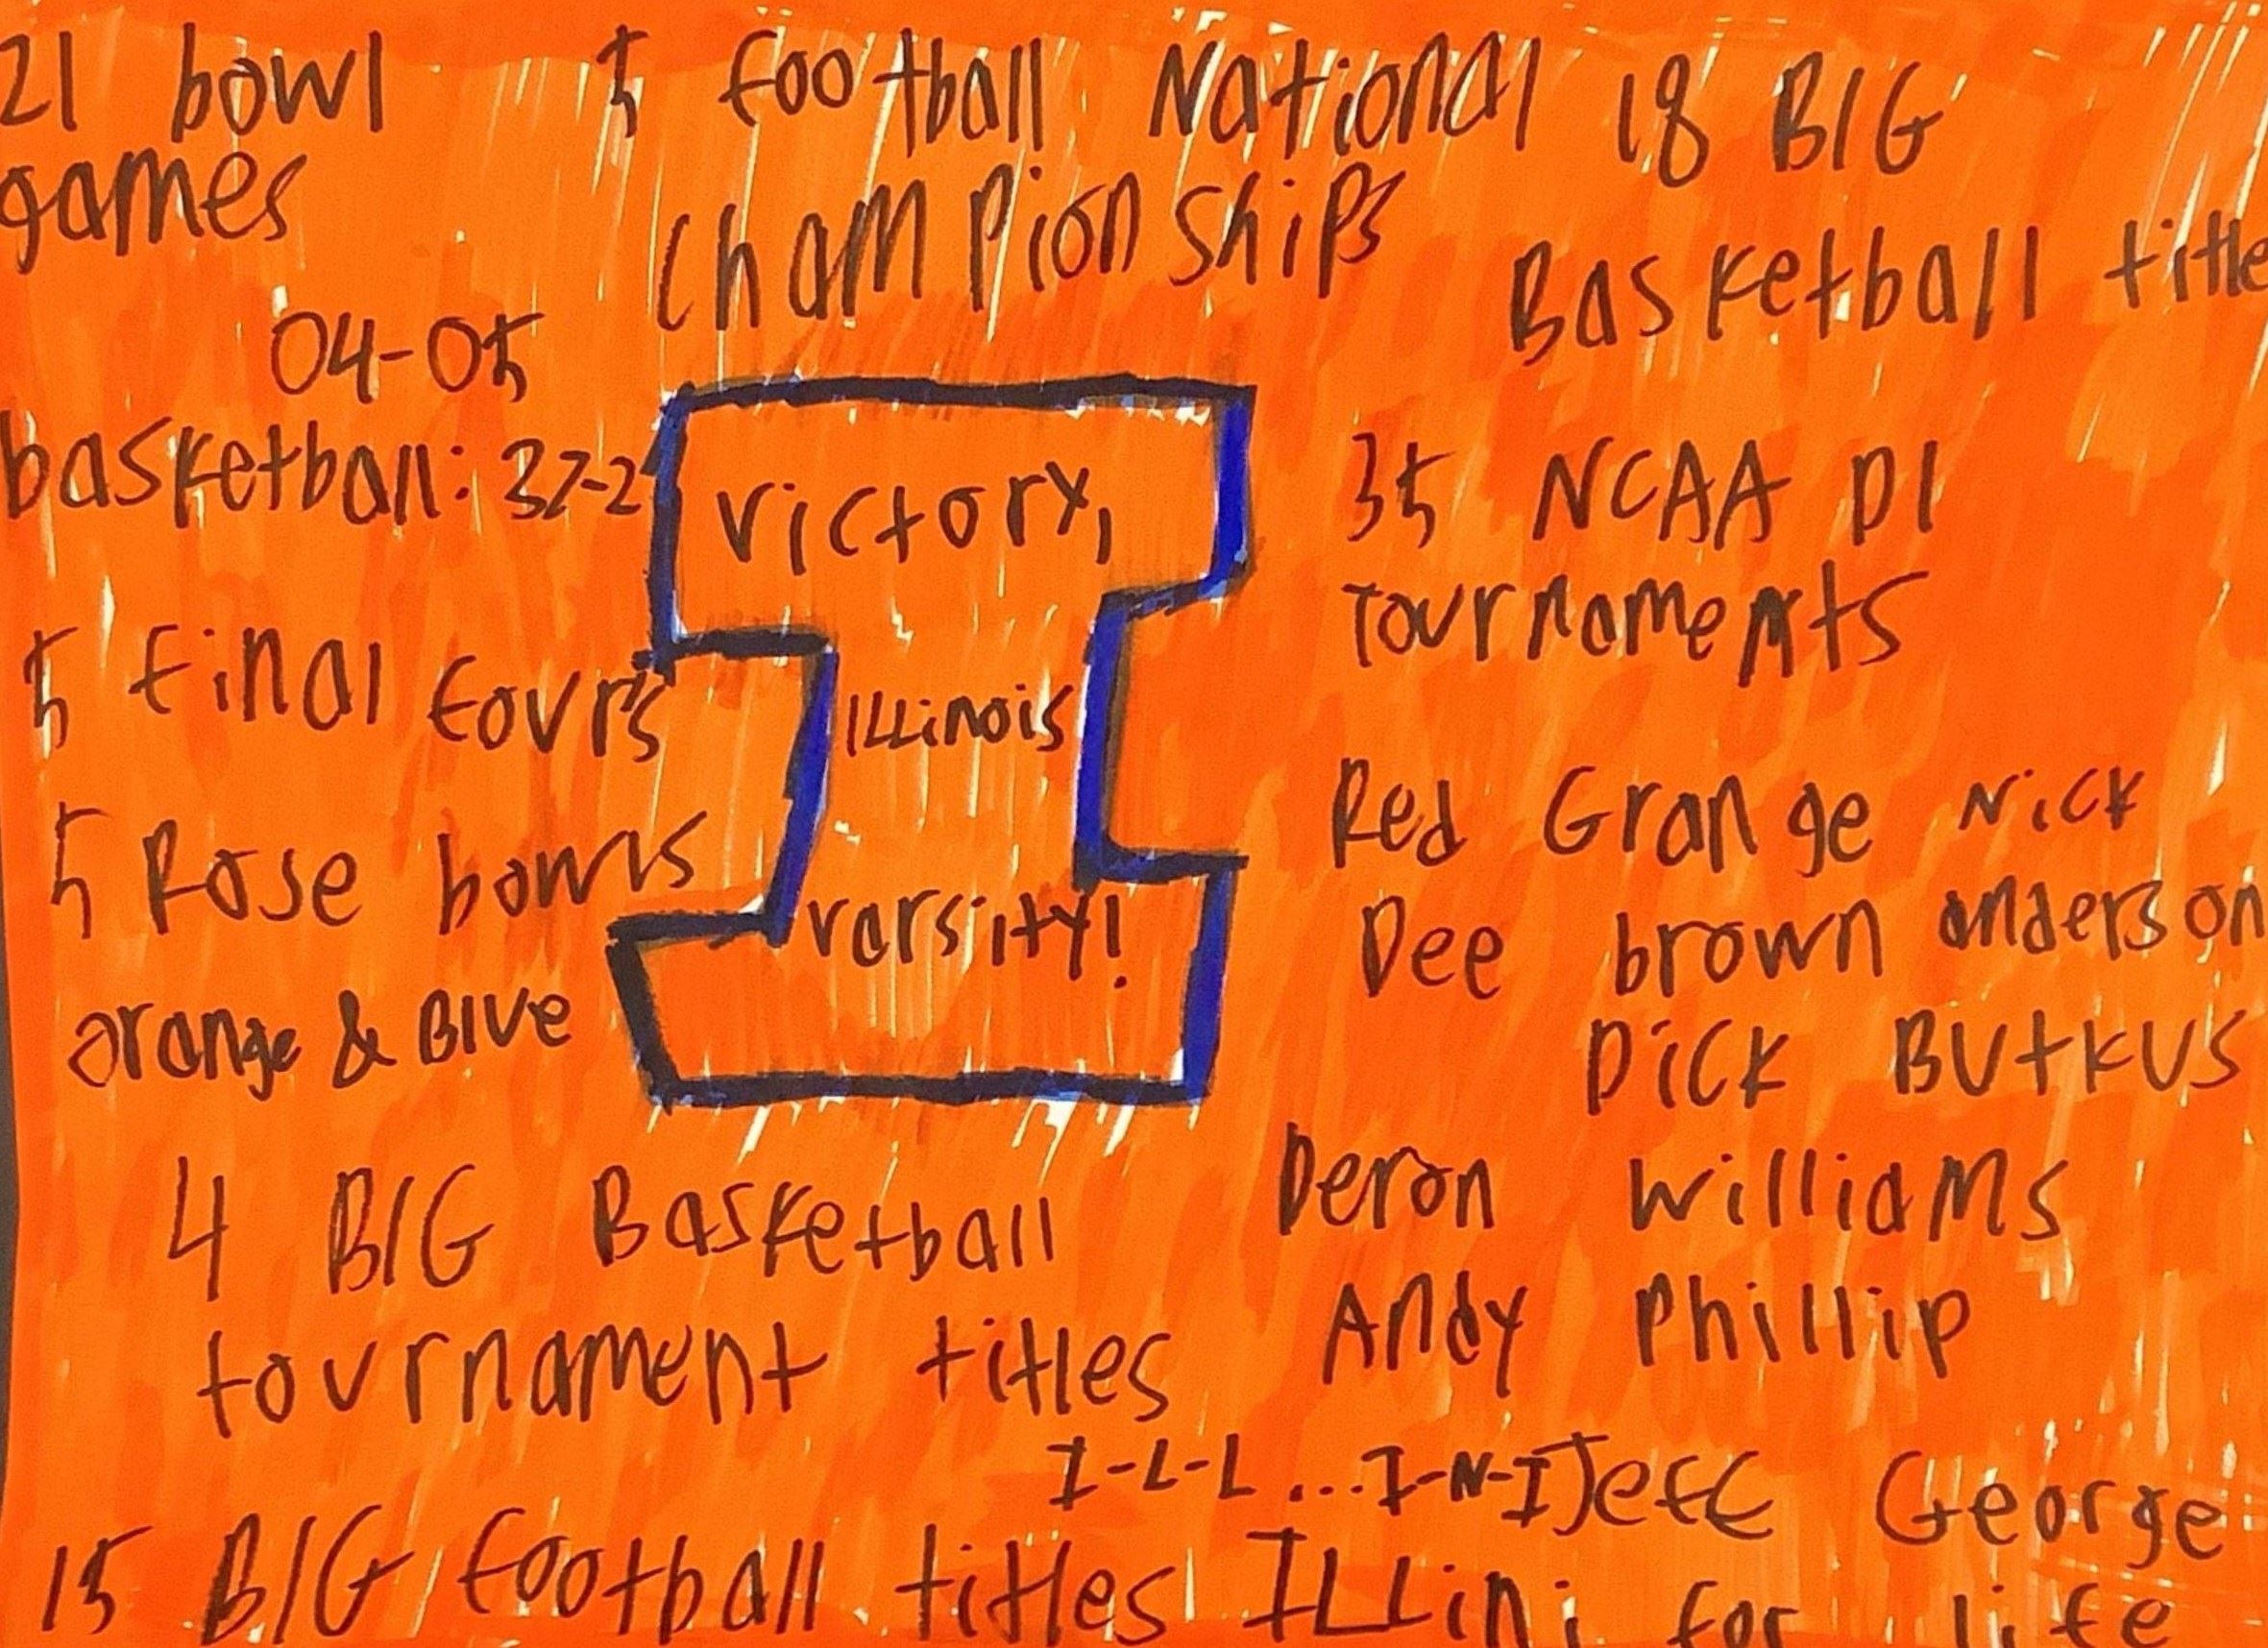 21 bowl
games
5 football National
Championships
18 B1G
Basketball title
04-05
basketball: 37-2
5 final four's
5 Rose bowls
orange & Blue
Victory,
ILLinois
varsity!
35 NCAA D1
Tournaments
Red Grange
Nick
anderson
Dee brown
Dick Butkus
Deron Williams
Andy Phillip
4 B1G Basketball
tournament titles
I-L-L...I-N-I
Jeff George
15 B1G football titles
ILLini for life